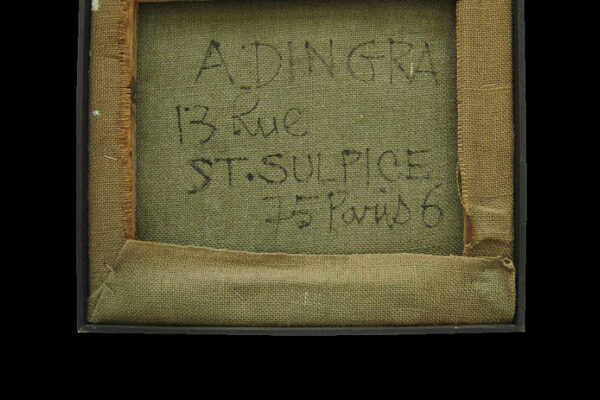 A. DINGRA
13 Rue
ST. SULPICE
75 Paris 6